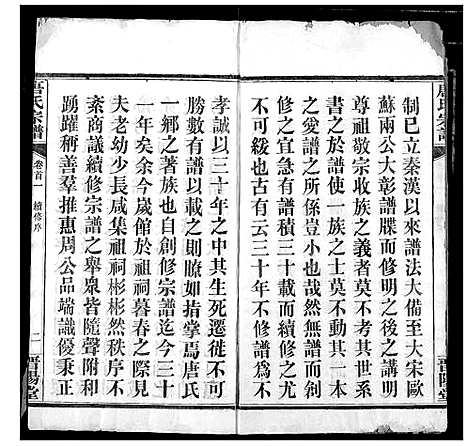 制已立秦漢以來譜法大備至大宋歐
蘇兩公大彰譜牒而修明之後之講明
尊祖敬宗收族之義者莫不考其世系
書之於譜使一族之士莫不動其一本
之愛譜之所係豈小也哉然而譜有續
修之宜急有譜積三十載而續修之尤
不可緩也古有云三十年不修譜爲不
孝誠以三十年之中其生死遷徙不可
勝數有譜以載之則瞭如指掌焉唐氏
一鄉之著族也自創修宗譜迄今三十
一年矣余今歲館於祖祠暮春之際見
夫老幼少長咸集祖祠彬彬然秩序不
紊商議續修宗譜之舉衆皆隨聲附和
踴躍稱善羣推惠周公品端識優秉正
唐氏宗譜
卷首一
續修序
二
晋陽堂